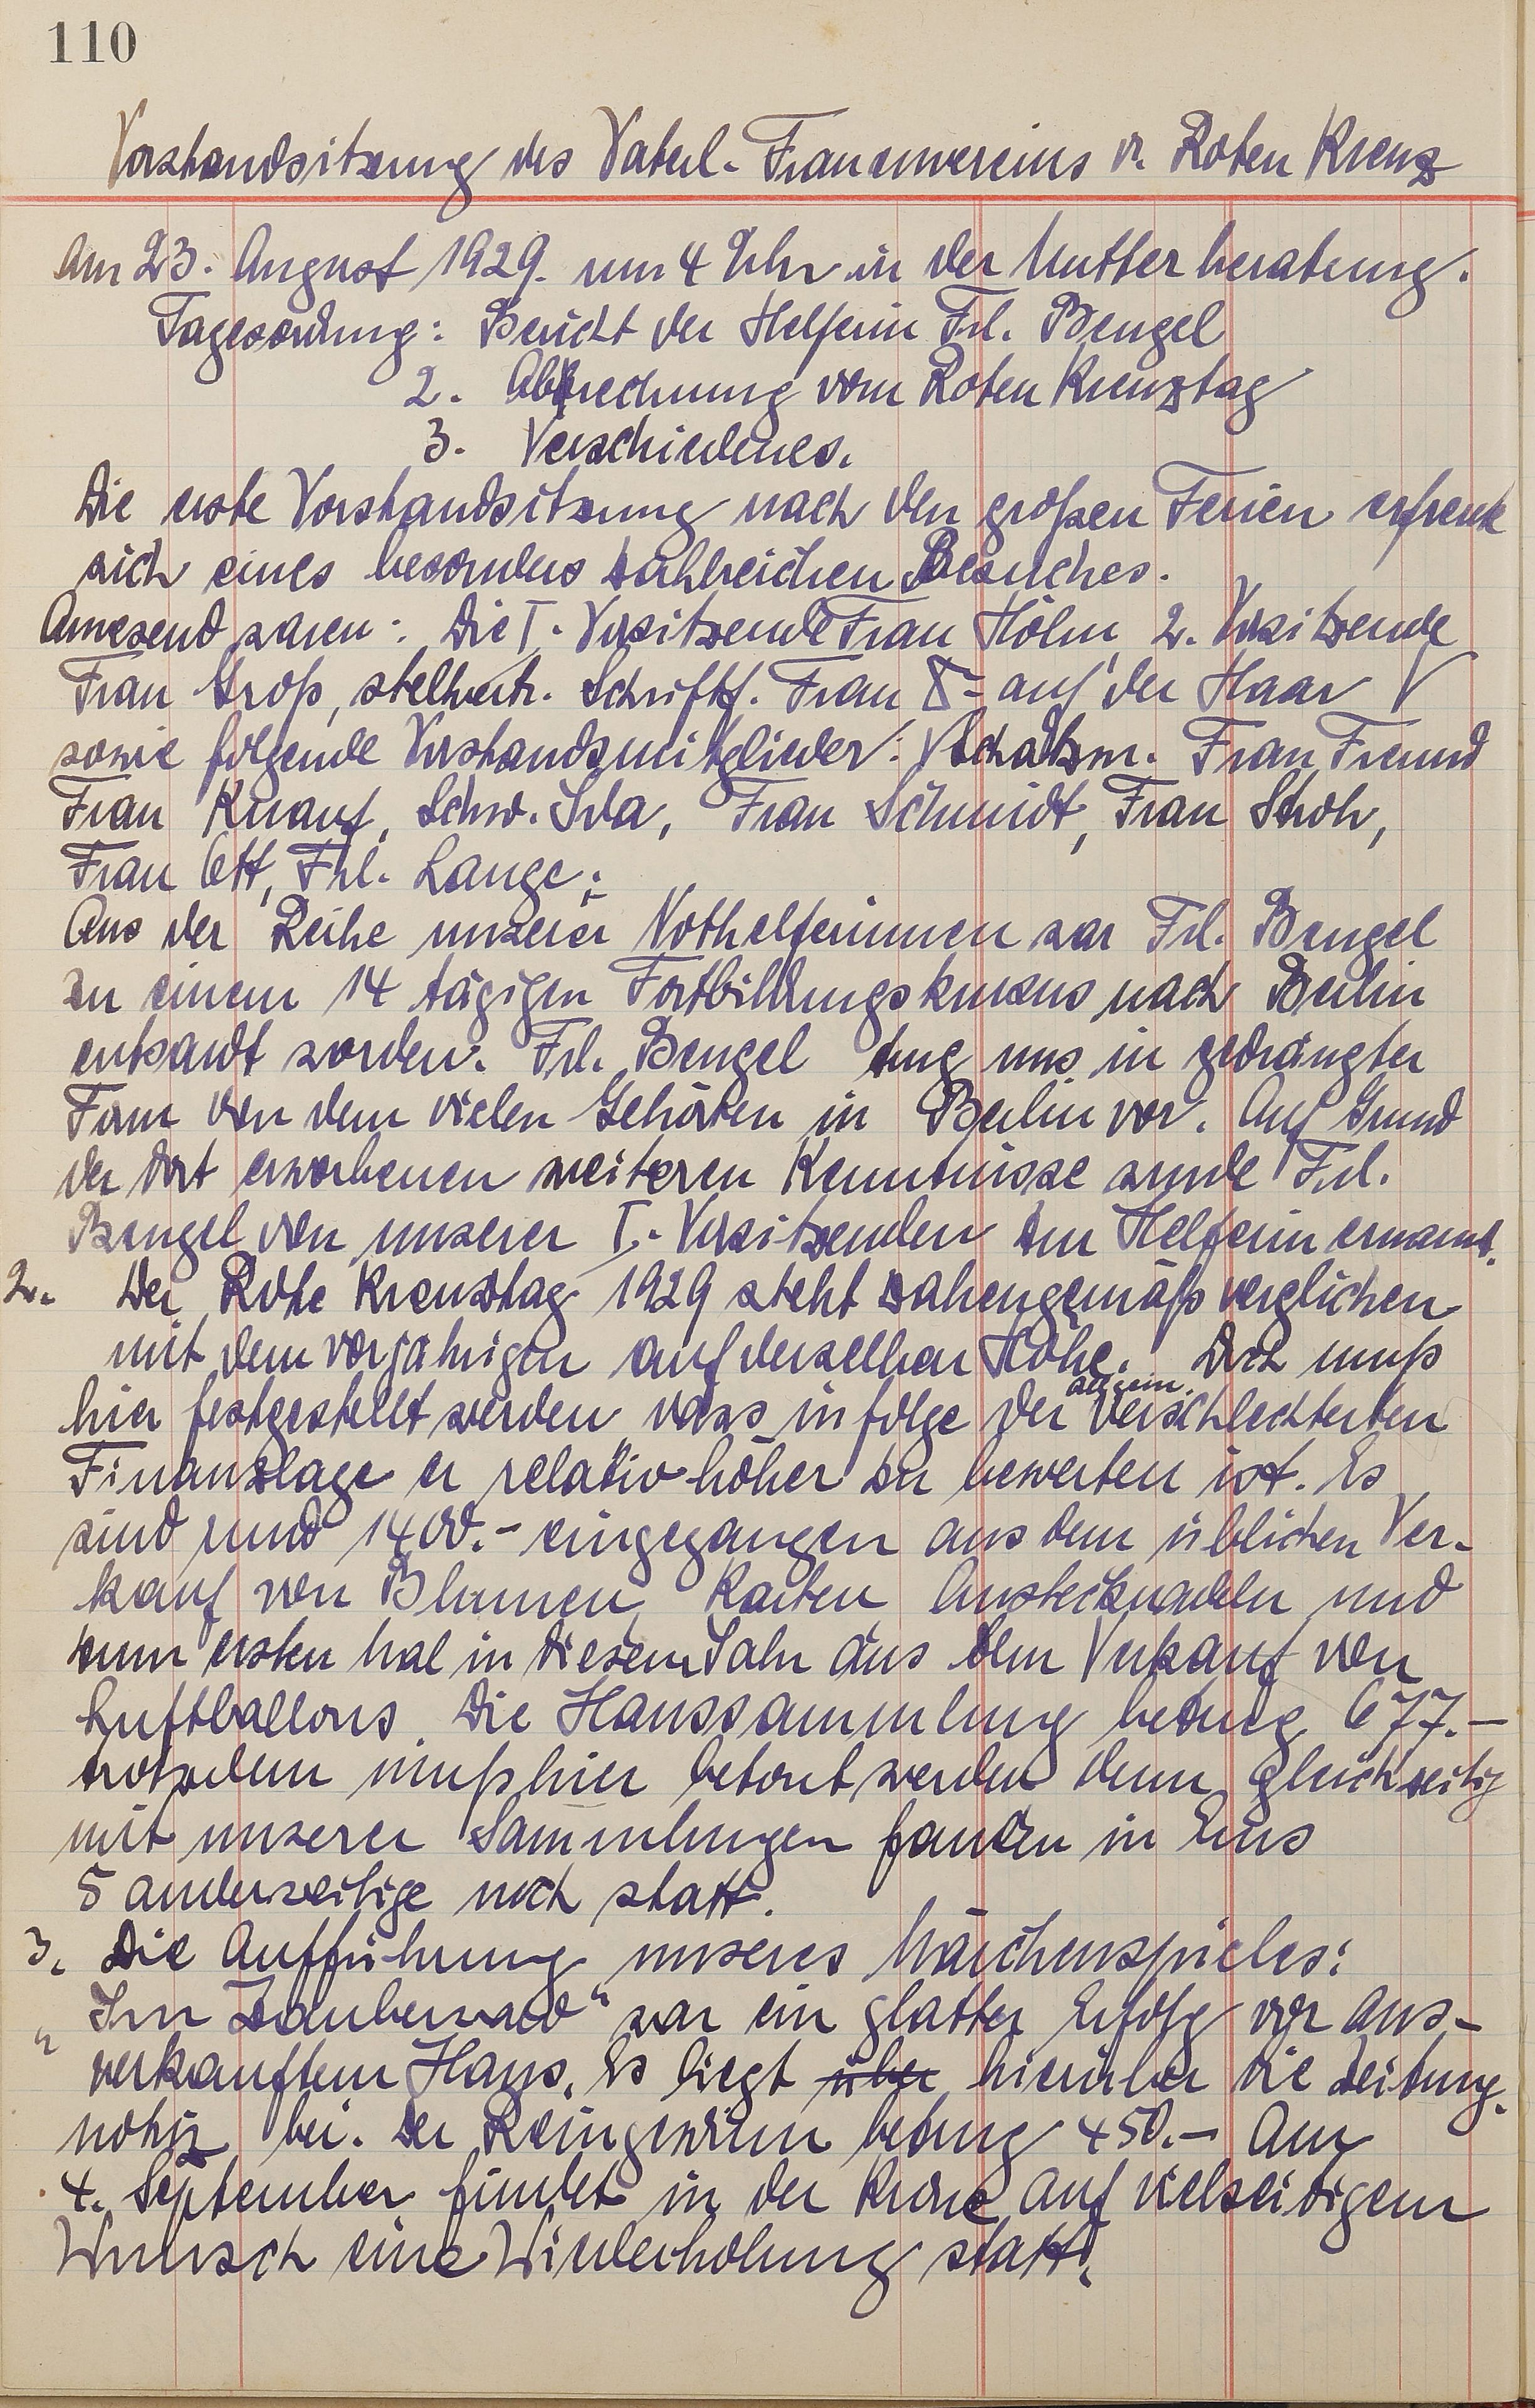 110
Vorstandsitzung des Vaterl. Frauenvereins v. Roten Kreuz
Am 23. August 1929. um 4 Uhr in der Mutterberatung.
Tagesordnung: Bericht der Helferin Frl. Bengel
2. Abrechnung vom Roten Kreuztag
3. Verschiedenes.
Die erste Vorstandsitzung nach den großen Ferien erfreute
sich eines besonders zahlreichen Besuches.
Anwesend waren: Die I. Vorsitzende Frau Höhn, 2. Vorsitzende
Frau Groß, stellvertr. Schriftf. Frau auf der Haar
sowie folgende Vorstandsmitglieder: Schatzm. Frau Freund
Frau Knauf, Schw. Ida, Frau Schmidt, Frau Stroh,
Frau Ott, Frl. Lange;
Aus der Reihe unserer Nothelferinnen war Frl. Bengel
zu einem 14 tägigen Fortbildungskursus nach Berlin
entsandt worden. Frl. Bengel trug uns in gedrängter
Form von dem vielen Gehörten in Berlin vor. Auf Grund
der dort erworbenen weiteren Kenntnisse wurde Frl.
Bengel von unserer I. Vorsitzenden zur Helferin ernannt.
2. Der Rote Kreuztag 1929 steht zahengemäß verglichen
mit dem vorjährigen auf derselben Höhe. Doch muß
hier festgestellt werden, dass infolge der allgem. verschlechterten
Finanzlage er relativ höher zu bewerten ist. Es
sind rund 1400.- eingegangen aus dem üblichen Ver-
kauf von Blumen, Karten, Anstecknadeln und
zum ersten Mal in diesem Jahr aus dem Verkauf von
Luftballons. Die Haussammlung betrug 677.-
trotzdem muß hier betont werden denn gleichzeitig
mit unserer Sammlungen fanden in Ems
5 anderweitige noch statt.
3. Die Aufführung unseres Märchenspieles:
„Im Zauberwald" war ein glatter Erfolg vor aus-
verkauftem Haus. Es liegt über hierüber die Zeitung-
notiz bei. Der Reingewinn betrug 450.- Am
4. September findet in der Krone auf vielseitigem
Wunsch eine Wiederholung statt.